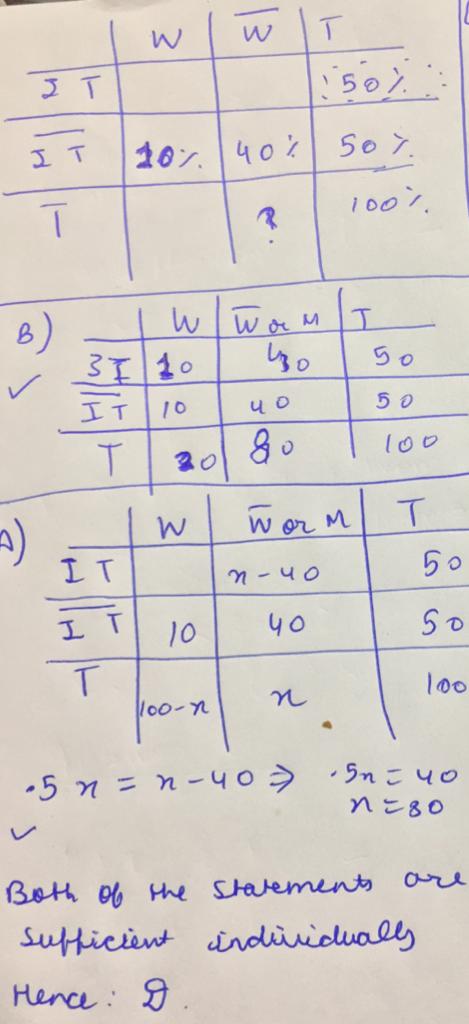 W W̅ T
I T 50%
I̅ T̅ 10% 40% 50%
T̅ ? 100%
B) W W̅ or M T
3I 10 40 50
I̅ T̅ 10 40 50
T 20 80 100
A) W W̅ or M T
I T n-40 50
I̅ T̅ 10 40 50
T 100-n n 100
.5 n = n-40 ⇒ .5n = 40
n = 80
Both of the statements are
sufficient individually
Hence: D.